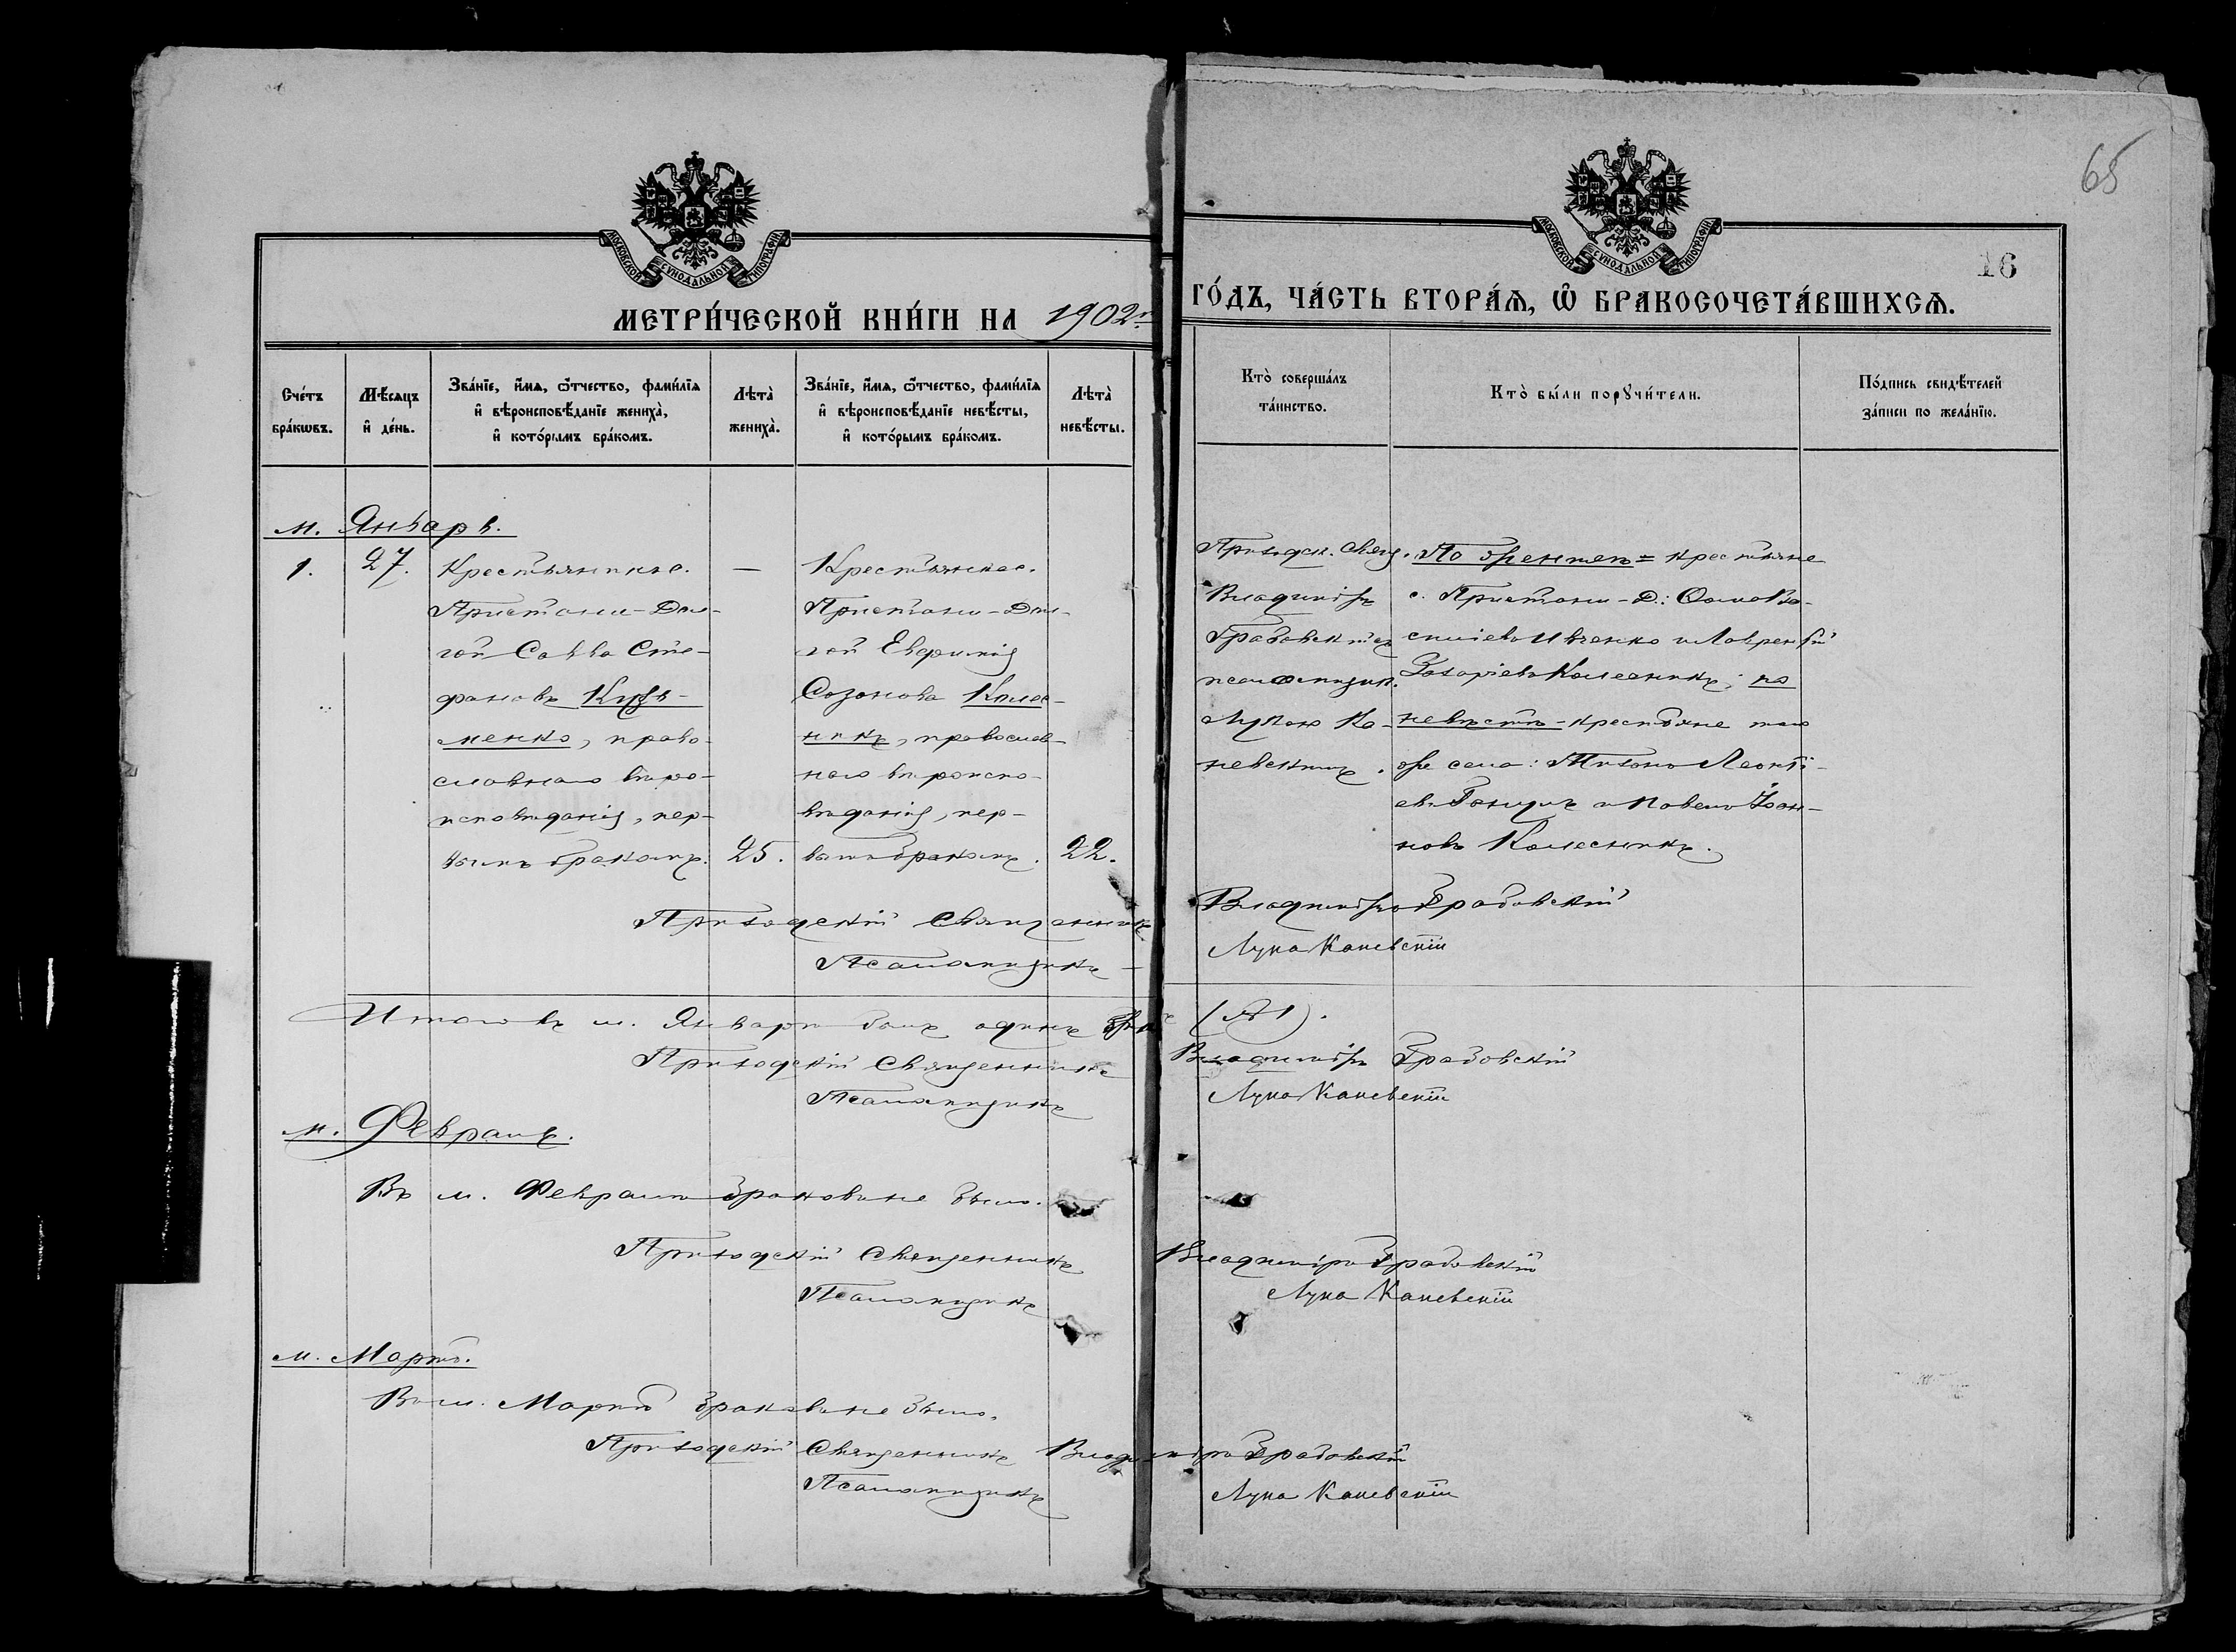 65
16
МОСКОВСКОЙ СѴНОДАЛЬНОЙ ТИПОГРАФІИ
МОСКОВСКОЙ СѴНОДАЛЬНОЙ ТИПОГРАФІИ
МЕТРИ́ЧЕСКОЙ КНИ́ГИ НА 1902 г.
ГО́ДЪ, ЧА́СТЬ ВТОРА́Ѧ, Ѽ БРАКОСОЧЕТА́ВШИХСѦ.
Сче́тъ бра́кѡвъ.
Мѣ́сѧцъ и҆ де́нь.
Зва́нїе, и҆́мѧ, ѻ҆́тчество, фами́лїѧ и҆ вѣроисповѣ́данїе жениха̀, и҆ кото́рымъ бра́комъ.
Лѣта̀ жениха̀.
Зва́нїе, и҆́мѧ, ѻ҆́тчество, фами́лїѧ и҆ вѣроисповѣ́данїе невѣ́сты, и҆ кото́рымъ бра́комъ.
Лѣта̀ невѣ́сты.
Кто̀ соверша́лъ та́инство.
Кто̀ бы́ли порꙋчи́тели.
По́дпись свидѣ́телей за́писи по жела́нїю.
м. Январь.
1.
27.
Крестьянинъ с.
Пристани-Дол-
гой Савва Сте-
фановъ Кузь-
менко, право-
славнаго вѣро-
исповѣданія, пер-
вымъ бракомъ.
25.
Крестьянка с.
Пристани-Дол-
гой Евфимія
Созонова Колес-
никъ, православ-
наго вѣроиспо-
вѣданія, пер-
вымъ бракомъ.
22.
Приходск. Свящ.
Владиміръ
Грабовскій съ
псаломщик.
Лукою Ка-
невскимъ.
По женихѣ = крестьяне
с. Пристани-Д.: Ѳома Ва-
силіевъ Ивченко и Лаврентій
Захаріевъ Колесникъ; по
невѣстѣ - крестьяне того
же села: Тихонъ Леонті-
евъ и Павелъ Іоан-
новъ Колесникъ.
Приходскій Священникъ Владиміръ Грабовскій
Псаломщикъ - Лука Каневскій
Итого въ м. Январѣ былъ одинъ бракъ (№1).
Приходскій Священникъ Владиміръ Грабовскій
Псаломщикъ Лука Каневскій
м. Февраль.
Въ м. Февралѣ браковъ не было.
Приходскій Священникъ Владиміръ Грабовскій
Псаломщикъ Лука Каневскій
м. Мартъ.
Въ м. Мартѣ браковъ не было.
Приходскій Священникъ Владиміръ Грабовскій
Псаломщикъ Лука Каневскій